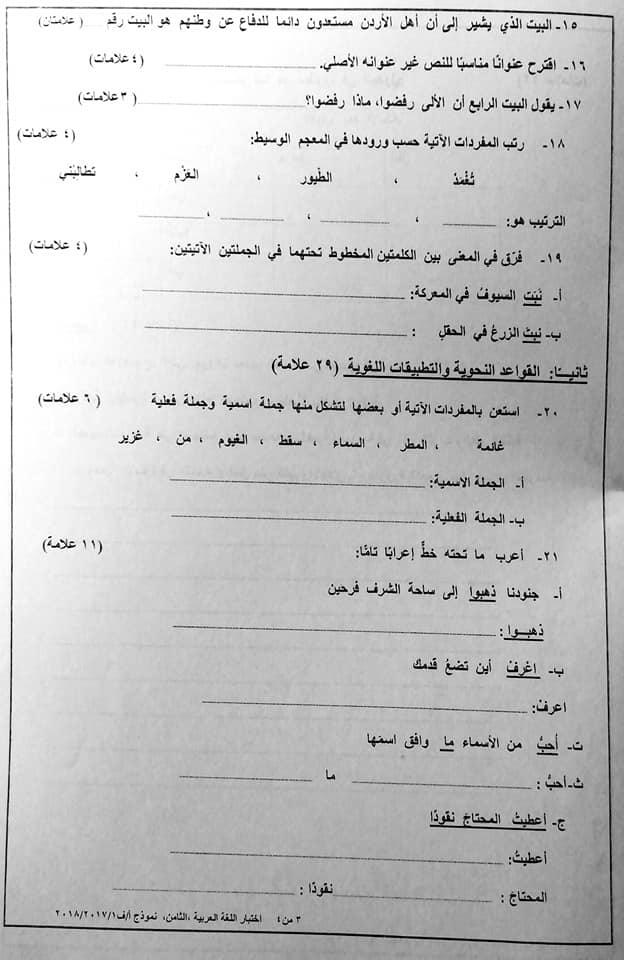 ١٥- البيت الذي يشير إلى أن أهل الأردن مستعدون دائما للدفاع عن وطنهم هو البيت رقم ........ ( علامتان)
١٦- اقترح عنوانًا مناسبًا للنص غير عنوانه الأصلي. ........ (٤ علامات)
١٧- يقول البيت الرابع أن الألى رفضوا، ماذا رفضوا؟ ........ (٣ علامات)
١٨- رتب المفردات الآتية حسب ورودها في المعجم الوسيط: (٤ علامات)
تُغْمَدُ ، الطّيور ، العَزْم ، تطالِبُني
الترتيب هو: ........ ، ........ ، ........ ، ........
١٩- فرّق في المعنى بين الكلمتين المخطوط تحتهما في الجملتين الآتيتين: (٤ علامات)
أ- نَبَت السيوفُ في المعركة: ........
ب- نبتَ الزرعُ في الحقلِ : ........
ثانيًا: القواعد النحوية والتطبيقات اللغوية (٢٩ علامة)
٢٠- استعن بالمفردات الآتية أو بعضها لتشكل منها جملة اسمية وجملة فعلية (٦ علامات)
غائمة ، المطر ، السماء ، سقط ، الغيوم ، من ، غزير
أ- الجملة الاسمية: ........
ب- الجملة الفعلية: ........
٢١- أعرب ما تحته خطٌّ إعرابًا تامًّا: (١١ علامة)
أ- جنودنا ذهبوا إلى ساحة الشرف فرحين
ذهبــوا : ........
ب- اعْرِفْ أين تضعُ قدمك
اعرفْ: ........
ت- أحبُّ من الأسماء ما وافق اسمَها
ث-أحبُّ : ........ ما ........
ج- أعطيتُ المحتاجَ نقودًا
أعطيتُ: ........
المحتاجَ : ........ نقودًا : ........
٣ من٤ اختبار اللغة العربية ،الثامن، نموذج أ/ف٢٠١٨/٢٠١٧/١